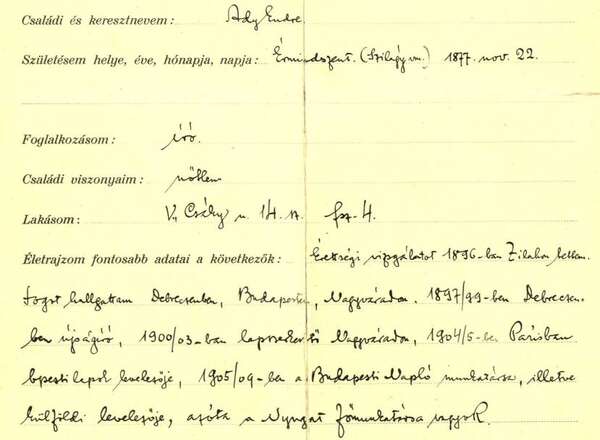 Családi és keresztnevem: Ady Endre.
Születésem helye, éve, hónapja, napja: Érmindszent. (Szilágy vm.) 1877. nov. 22.
Foglalkozásom: író.
Családi viszonyaim: nőtlen
Lakásom: V, Csáky u. 14. sz. fsz. 4.
Életrajzom fontosabb adatai a következők: Érettségi vizsgálatot 1896-ban Zilahon tettem.
Jogot hallgattam Debrecenben, Budapesten, Nagyváradon. 1897/99-ben Debrecen-
ben újságíró, 1900/03-ban lapszerkesztő Nagyváradon, 1904/5-ben Párisban
bpesti lapok levelezője, 1905/09-ben a Budapesti Napló munkatársa, illetve
külföldi levelezője, azóta a Nyugat főmunkatársa vagyok.